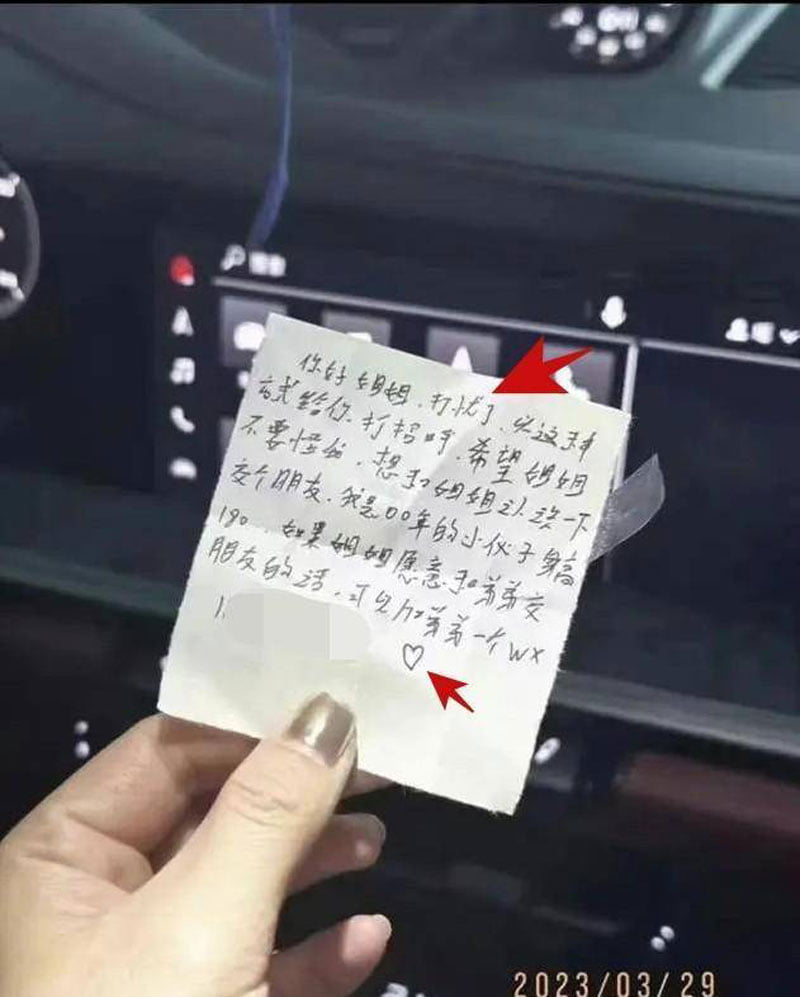 你好姐姐.打扰了.以这种
方式给你.打招呼.希望姐姐
不要怪我.想和姐姐认识一下
交个朋友.我是00年的小伙子身高
180..如果姐姐愿意和弟弟交
朋友的话.可以加弟弟一个wx
1.
2023/03/29